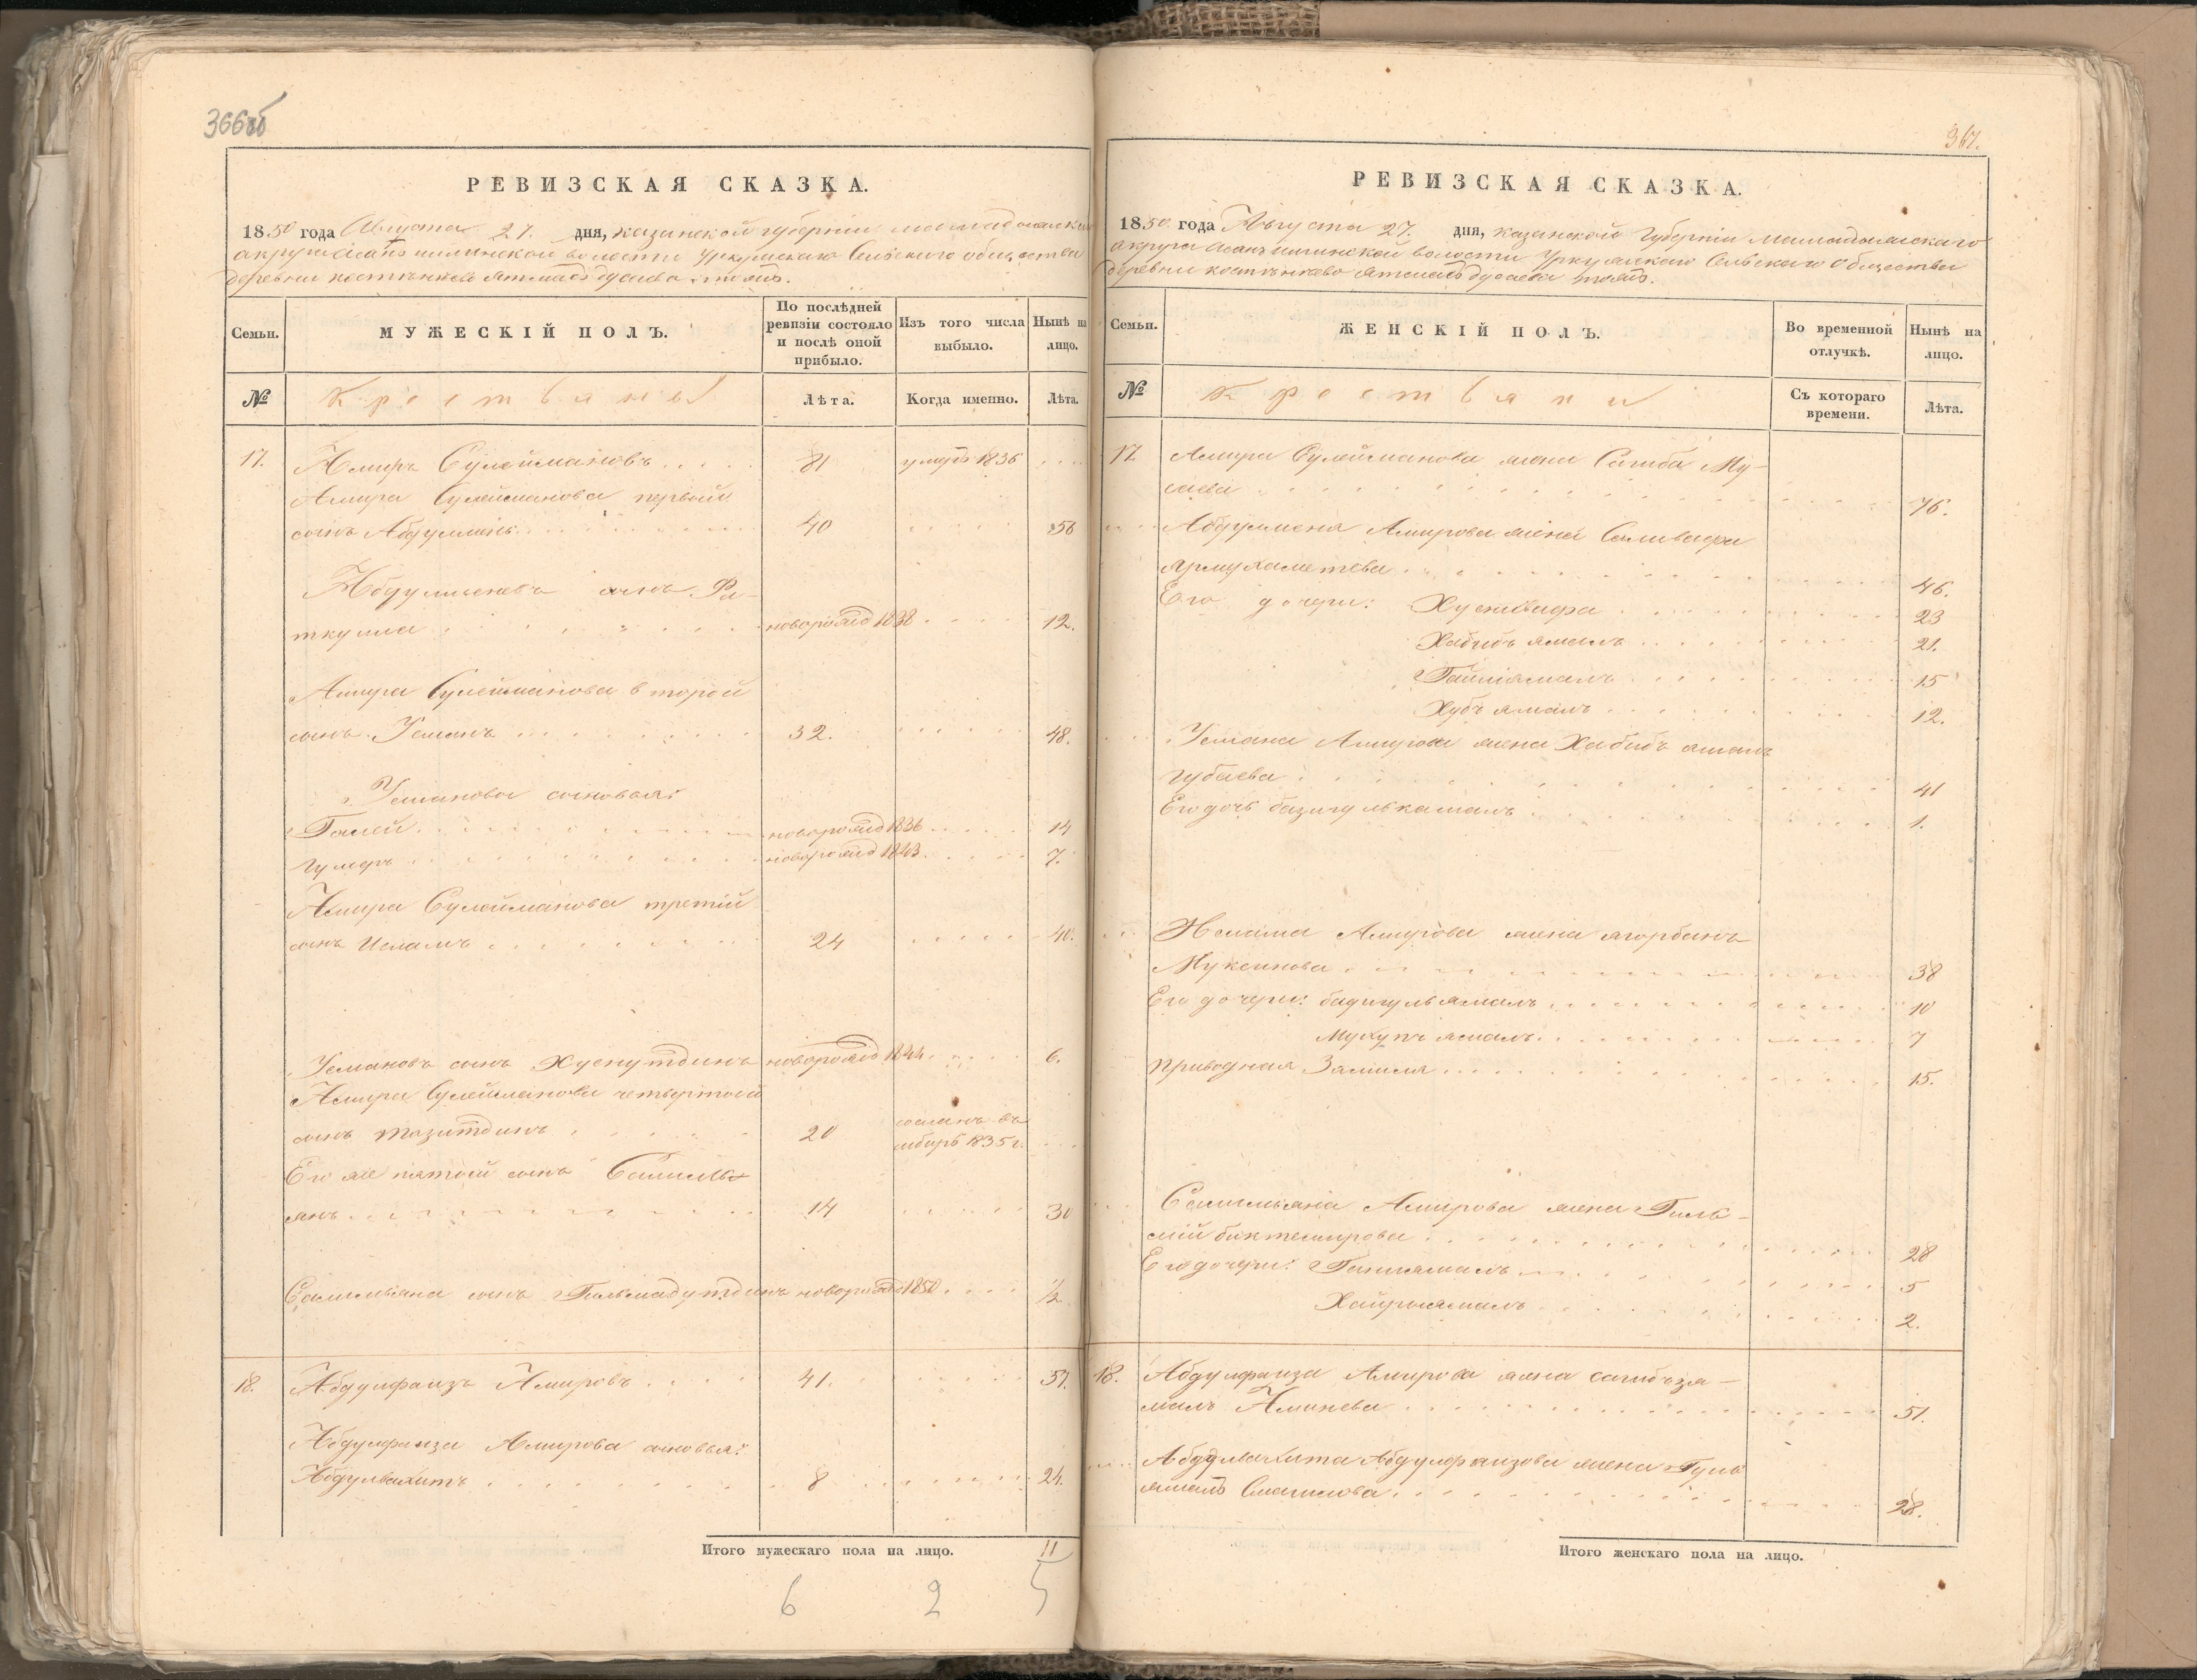 366об
РЕВИЗСКАЯ СКАЗКА.
1850 года Августа 27. дня, Казанской губернии Мамадышскаго
округа волости Уркушскаго Сельскаго общества
деревни
Семьи.
МУЖЕСКІЙ ПОЛЪ.
По послѣдней ревизіи состояло и послѣ оной прибыло.
Изъ того числа выбыло.
Нынѣ на лицо.
№
Крестьяне
Лѣта.
Когда именно.
Лѣта.
17. Амиръ Сулеймановъ 81 умеръ 1836
Амира Сулейманова первой
сынъ Абдулменъ 40 56
Абдулменевъ сынъ Фа-
ткулла новорожд 1838 12.
Амира Сулейманова второй
сынъ Усманъ 32. 48.
Усманова сыновья:
Галей новорожд 1836 14
Гумеръ новорожд 1843 7.
Амира Сулейманова третій
сынъ Исламъ 24 40.
Усмановъ сынъ Хуснутдинъ новорожд 1844 6.
Амира Сулейманова четвертой
сынъ Тазитдинъ 20 сосланъ въ
сибирь 1835 г.
Его же пятой сынъ Самиль-
янъ 14 30
Самильяна сынъ Гильмадутдинъ новорожд 1850 ½
18. Абдулфаизъ Амировъ 41. 57.
Абдулфаиза Амирова сыновья:
Абдулвахитъ 8 24.
Итого мужескаго пола на лицо. 11
6 2 5
367.
РЕВИЗСКАЯ СКАЗКА.
1850 года Августа 27. дня, Казанской Губерніи Мамадышскаго
округа волости Уркушскаго Сельскаго Общества
деревни
Семьи.
ЖЕНСКІЙ ПОЛЪ.
Во временной отлучкѣ.
Нынѣ на лицо.
№
Крестьяни
Съ котораго времени.
Лѣта.
17 Амира Сулейманова жена Сагиба Му-
саева 76.
Абдулмена Амирова жена Саливафа
Ярмухаметева 46.
Его дочери: Хуснвафа 23
Хабибъ ямалъ 21.
Гайниямалъ 15
Хубъ ямалъ 12.
Усмана Амирова жена Хабибъ ямалъ
Губаева 41
Его дочь базигулькамалъ 1.
Ислама Амирова жена
Муксинова 38
Его дочери: бадигульямалъ 10
ямалъ 7
Приводная Замиля 15.
Самильяна Амирова жена Гиль-
мій биктемирова 28
Его дочери: Ганиямалъ 5
Хайриямалъ 2.
18. Абдулфаиза Амирова жена сагибъзя-
малъ Аминева 51.
Абдулвахита Абдулфаизова жена Гуль
ямалъ Смагилова 28.
Итого женскаго пола на лицо.